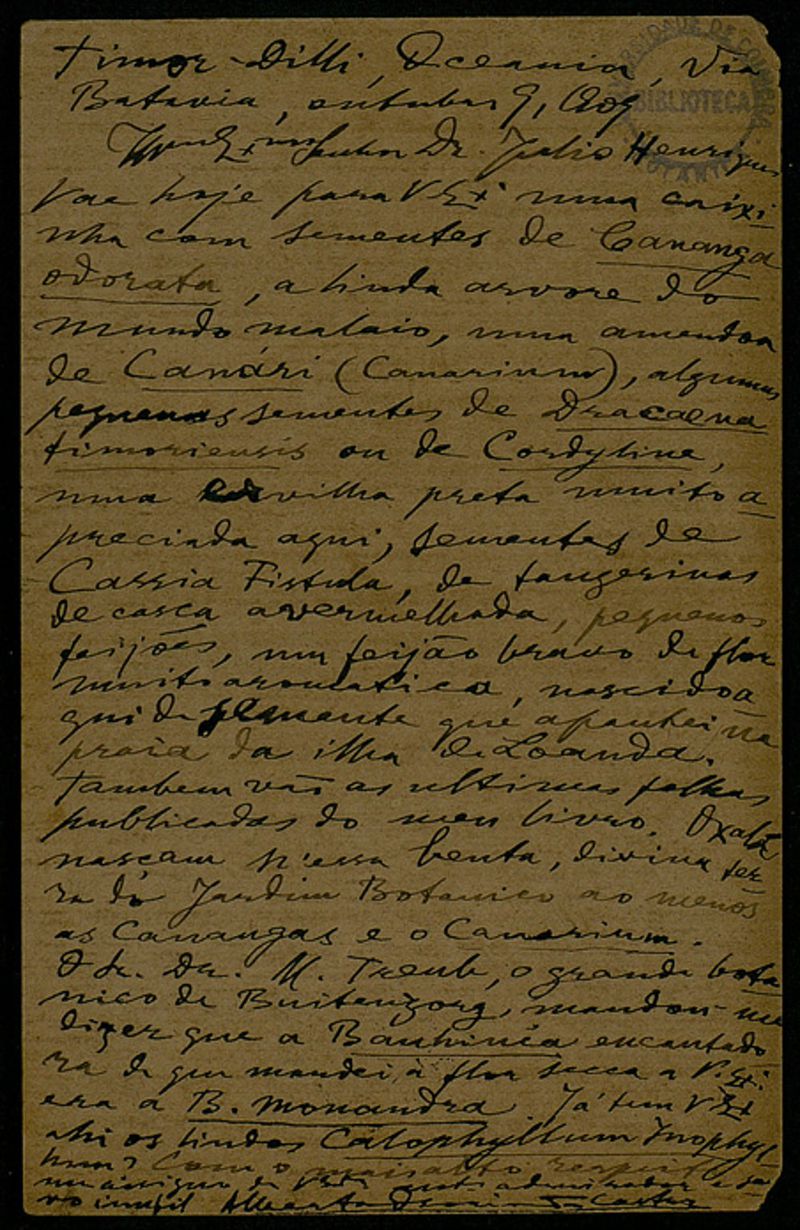 Timor-Dilli, Oceania, Via
Batavia, outubro 9, 1909
Senhor Dr. Julio Henriques
Vae hoje para V Exª uma caixi-
nha com sementes de Cananga
odorata, a linda arvore do
mundo malaio, uma amendoa
de Canári (Canarium), algumas
pequenas sementes de Dracaena
timoriensis ou de Cordyline,
uma ervilha preta muito a-
preciada aqui, sementes de
Cassia Fistula, de tangerinas
de casca avermelhada, pequenos
feijões, um feijão bravo de flor
muito aromatica, nascido a
qui de semente que apanhei na
praia da ilha de Loanda.
Tambem vão as ultimas folhas
publicadas do meu livro. Oxalá
nasçam n'essa benta, divina ter-
ra do Jardim Botanico ao menos
as Canangas e o Canarium.
O Sr. Dr. M. Treub, o grande bota-
nico de Buitenzorg, mandou-me
dizer que a Bauhinea encantado
ra de que mandei a flor secca a V. Exª.
era a B. monandra. Já tem V Exª
ahi os lindos Calophyllum Inophyl-
lum? Com o mais alto respeito
me assigno de V Exª admirador e ser-
vo inutil Alberto Osorio de Castro